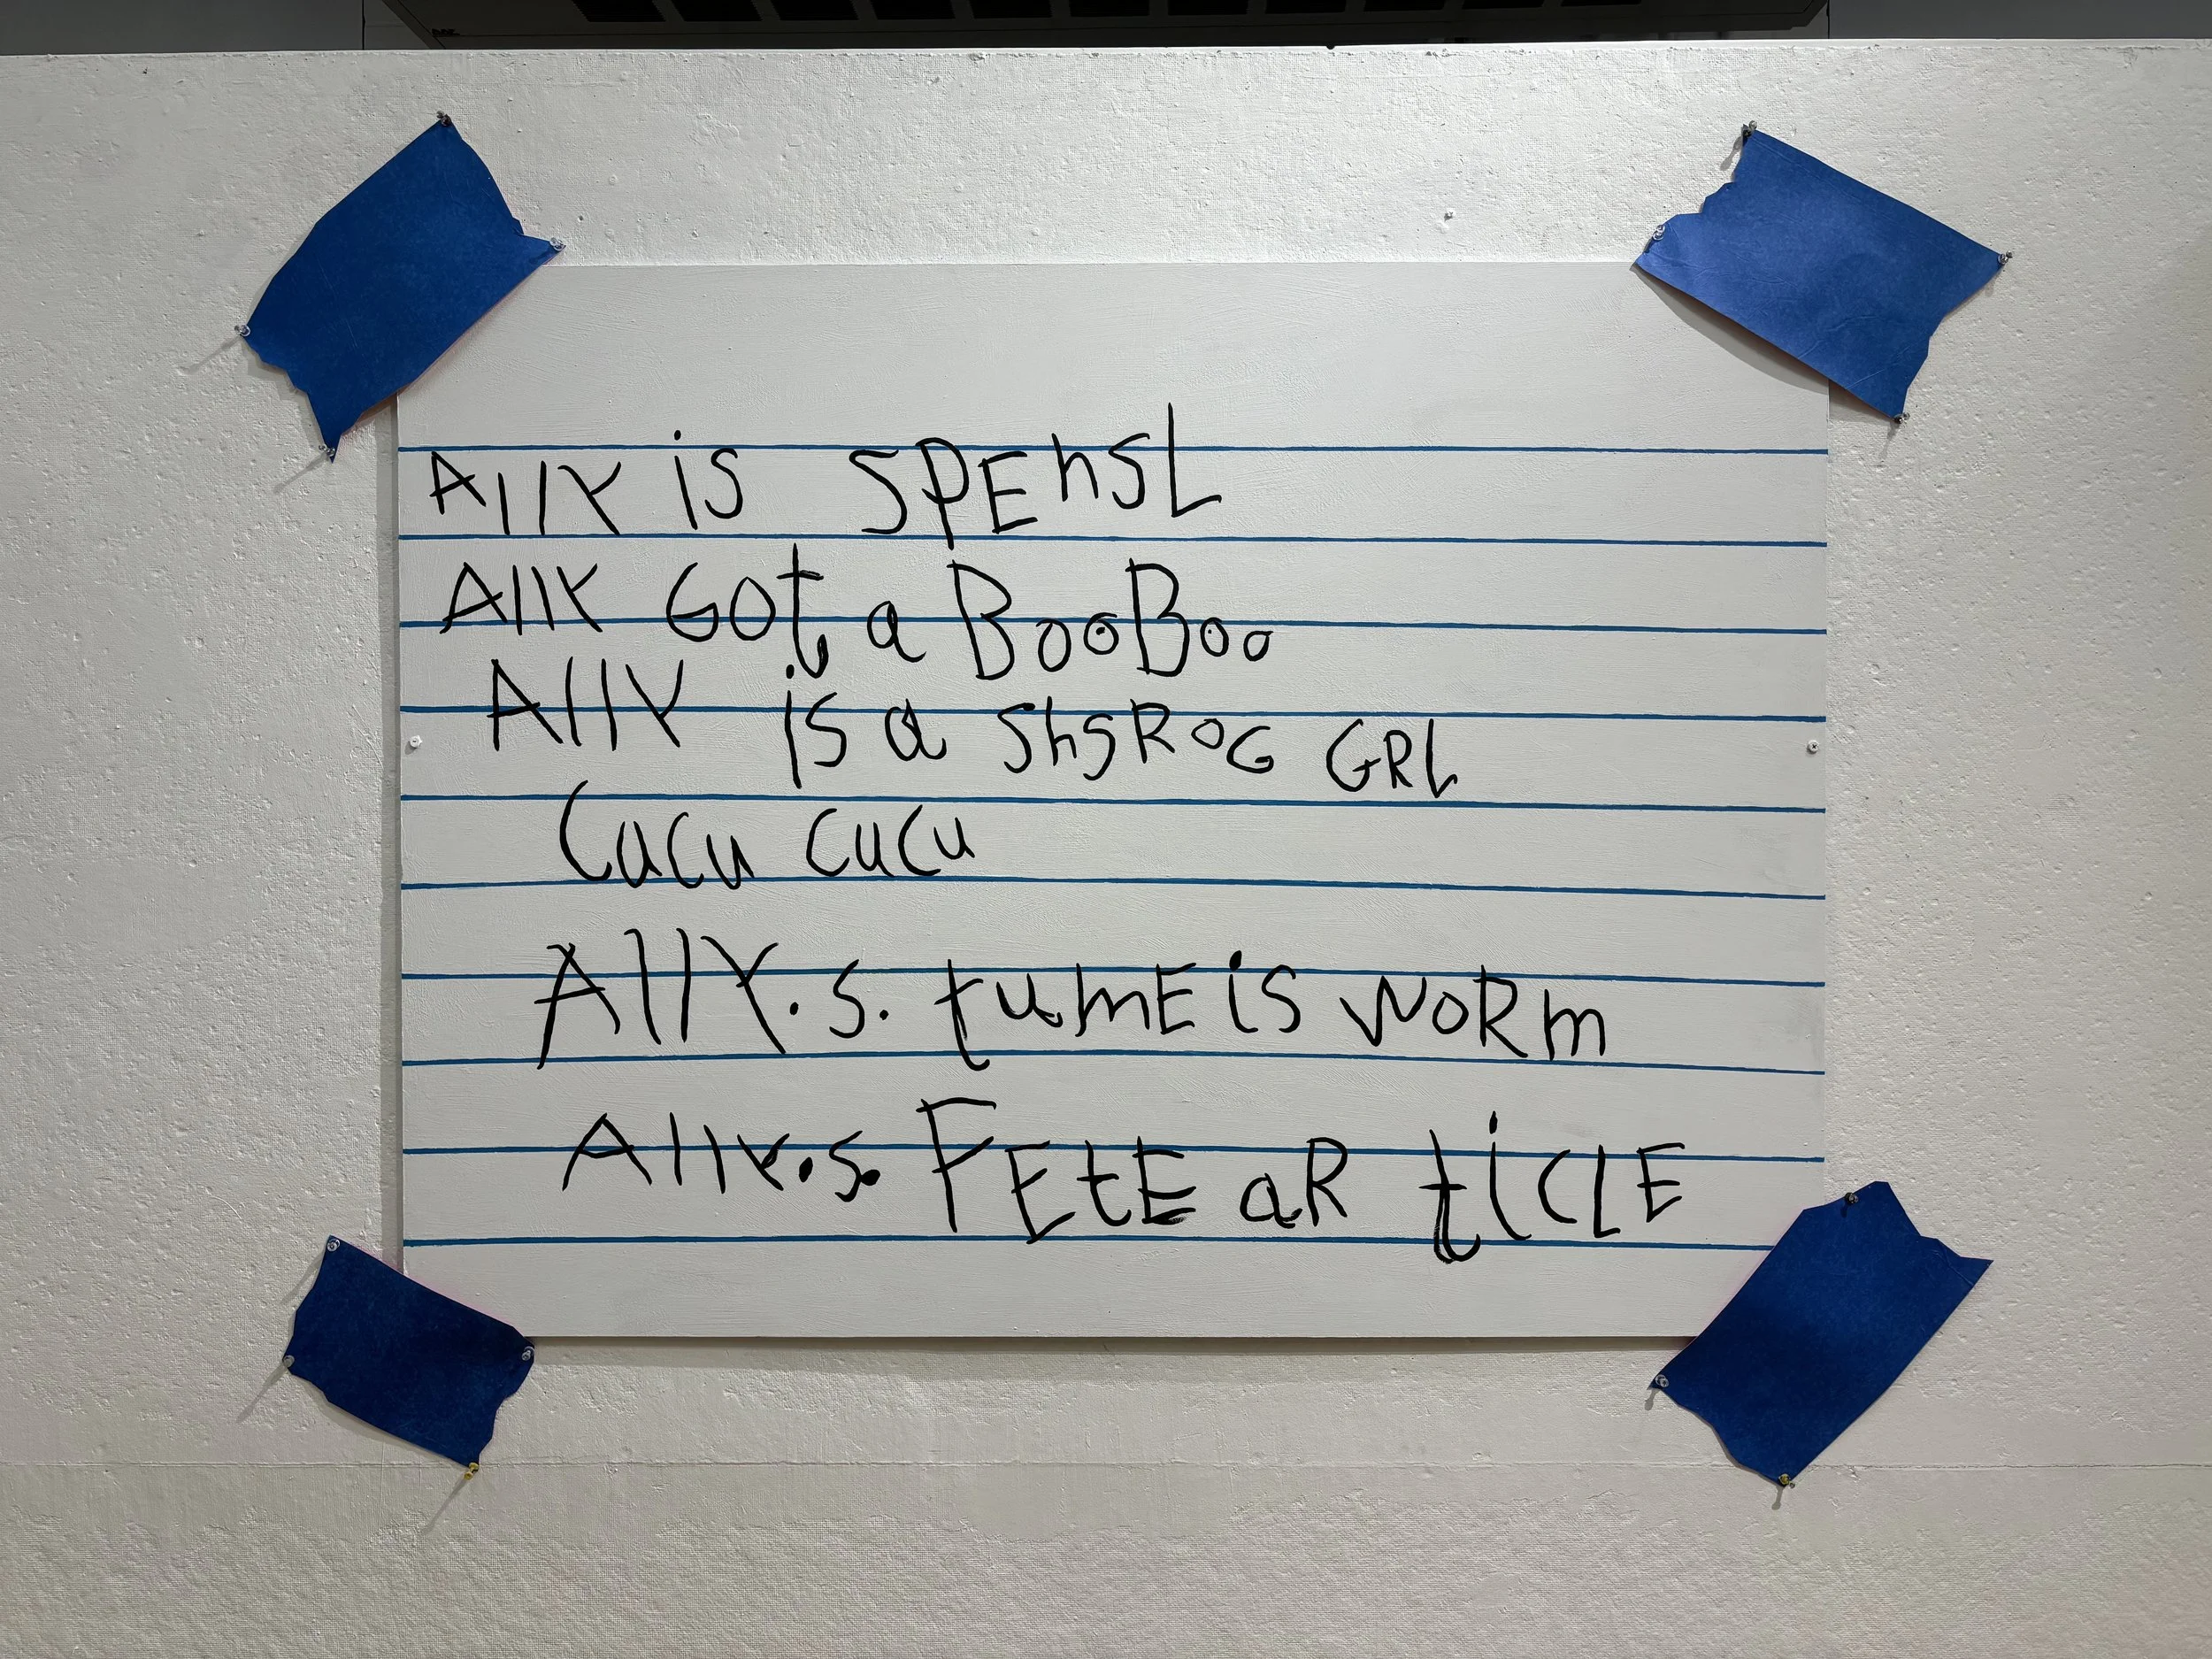 Ally is SPEhSL
Ally GOt a BooBoo
Ally is a ShSROG GRL
CuCu CuCu
Ally.s. tumE is WORm
Ally.s. FEtE aR tiCLE